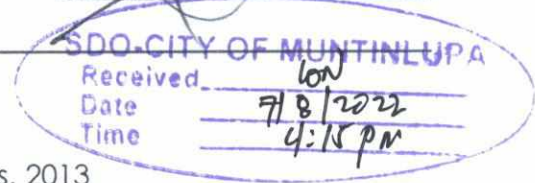 SDO-CITY OF MUNTINLUPA
Received
Date 7/8/2022
Time 4:15 PM
s. 2013